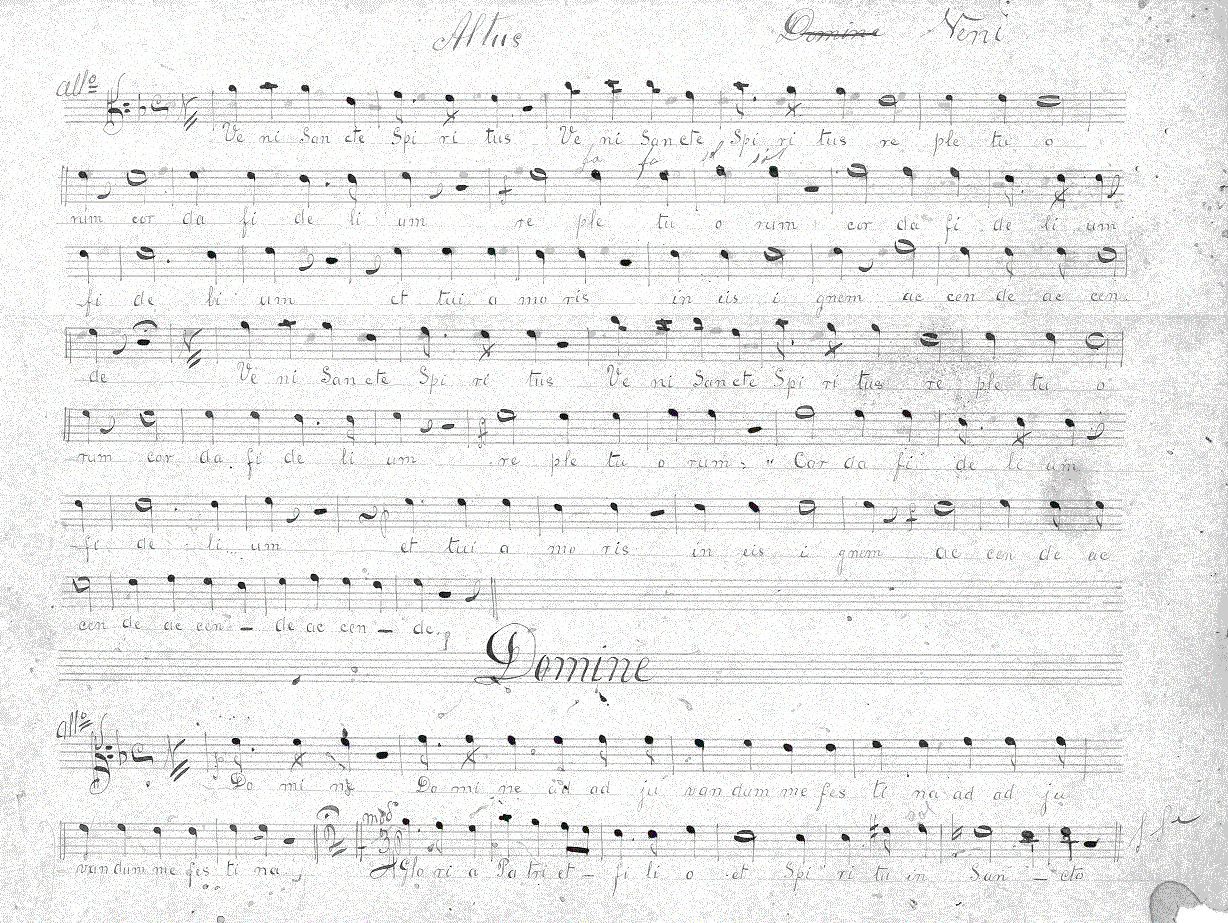 Altus Domine Veni
allo
Ve ni San cte Spi ri tus Ve ni San cte Spi ri tus re ple tu o
fa fa
rum cor da fi de li um re ple tu o rum cor da fi de li um
fi de li um et tui a mo ris in eis i gnem ac cen de ac cen
de Ve ni San cte Spi ri tus Ve ni San cte Spi ri tus re ple tu o
rum cor da fi de li um re ple tu o rum : " Cor da fi de li um
fi de li um et tui a mo ris in eis i gnem ac cen de ac
cen de ac cen — de ac cen — de.
Domine
allo
Do mi ne Do mi ne ad ad ju van dum me fes ti na ad ad ju
modo
van dum me fes ti na Glo ri a Pa tri et – fi li o et Spi ri tu in San — cto